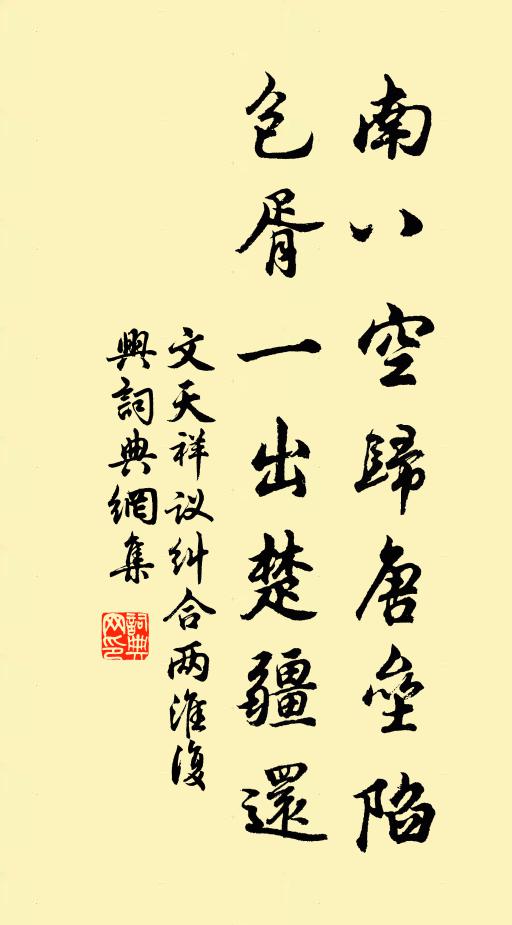 南八空歸唐壘陷
包胥一出楚疆還
文天祥议纠合两淮復
興詞典網集
詞典网印